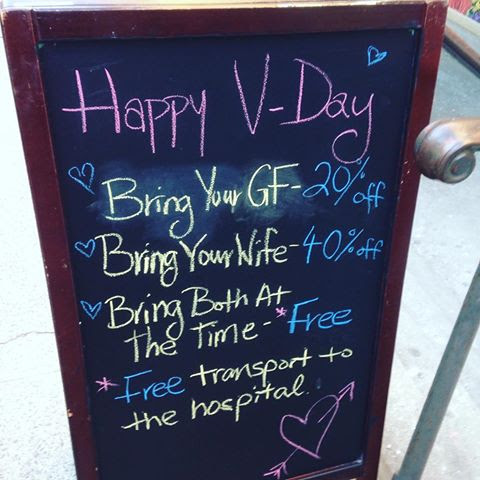 Happy V-Day
Bring Your GF- 20% off
Bring Your Wife- 40% off
Bring Both At
The Time- *Free
*Free transport to
the hospital.